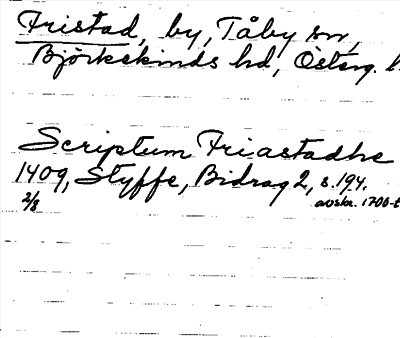 Fristad, by, Tåby sn,
Björkekinds hd, Östtrg. l.
Scriptum Friastadhe
1409, Styffe, Bidrag 2, s. 194.
2/8 avskr. 1700-t